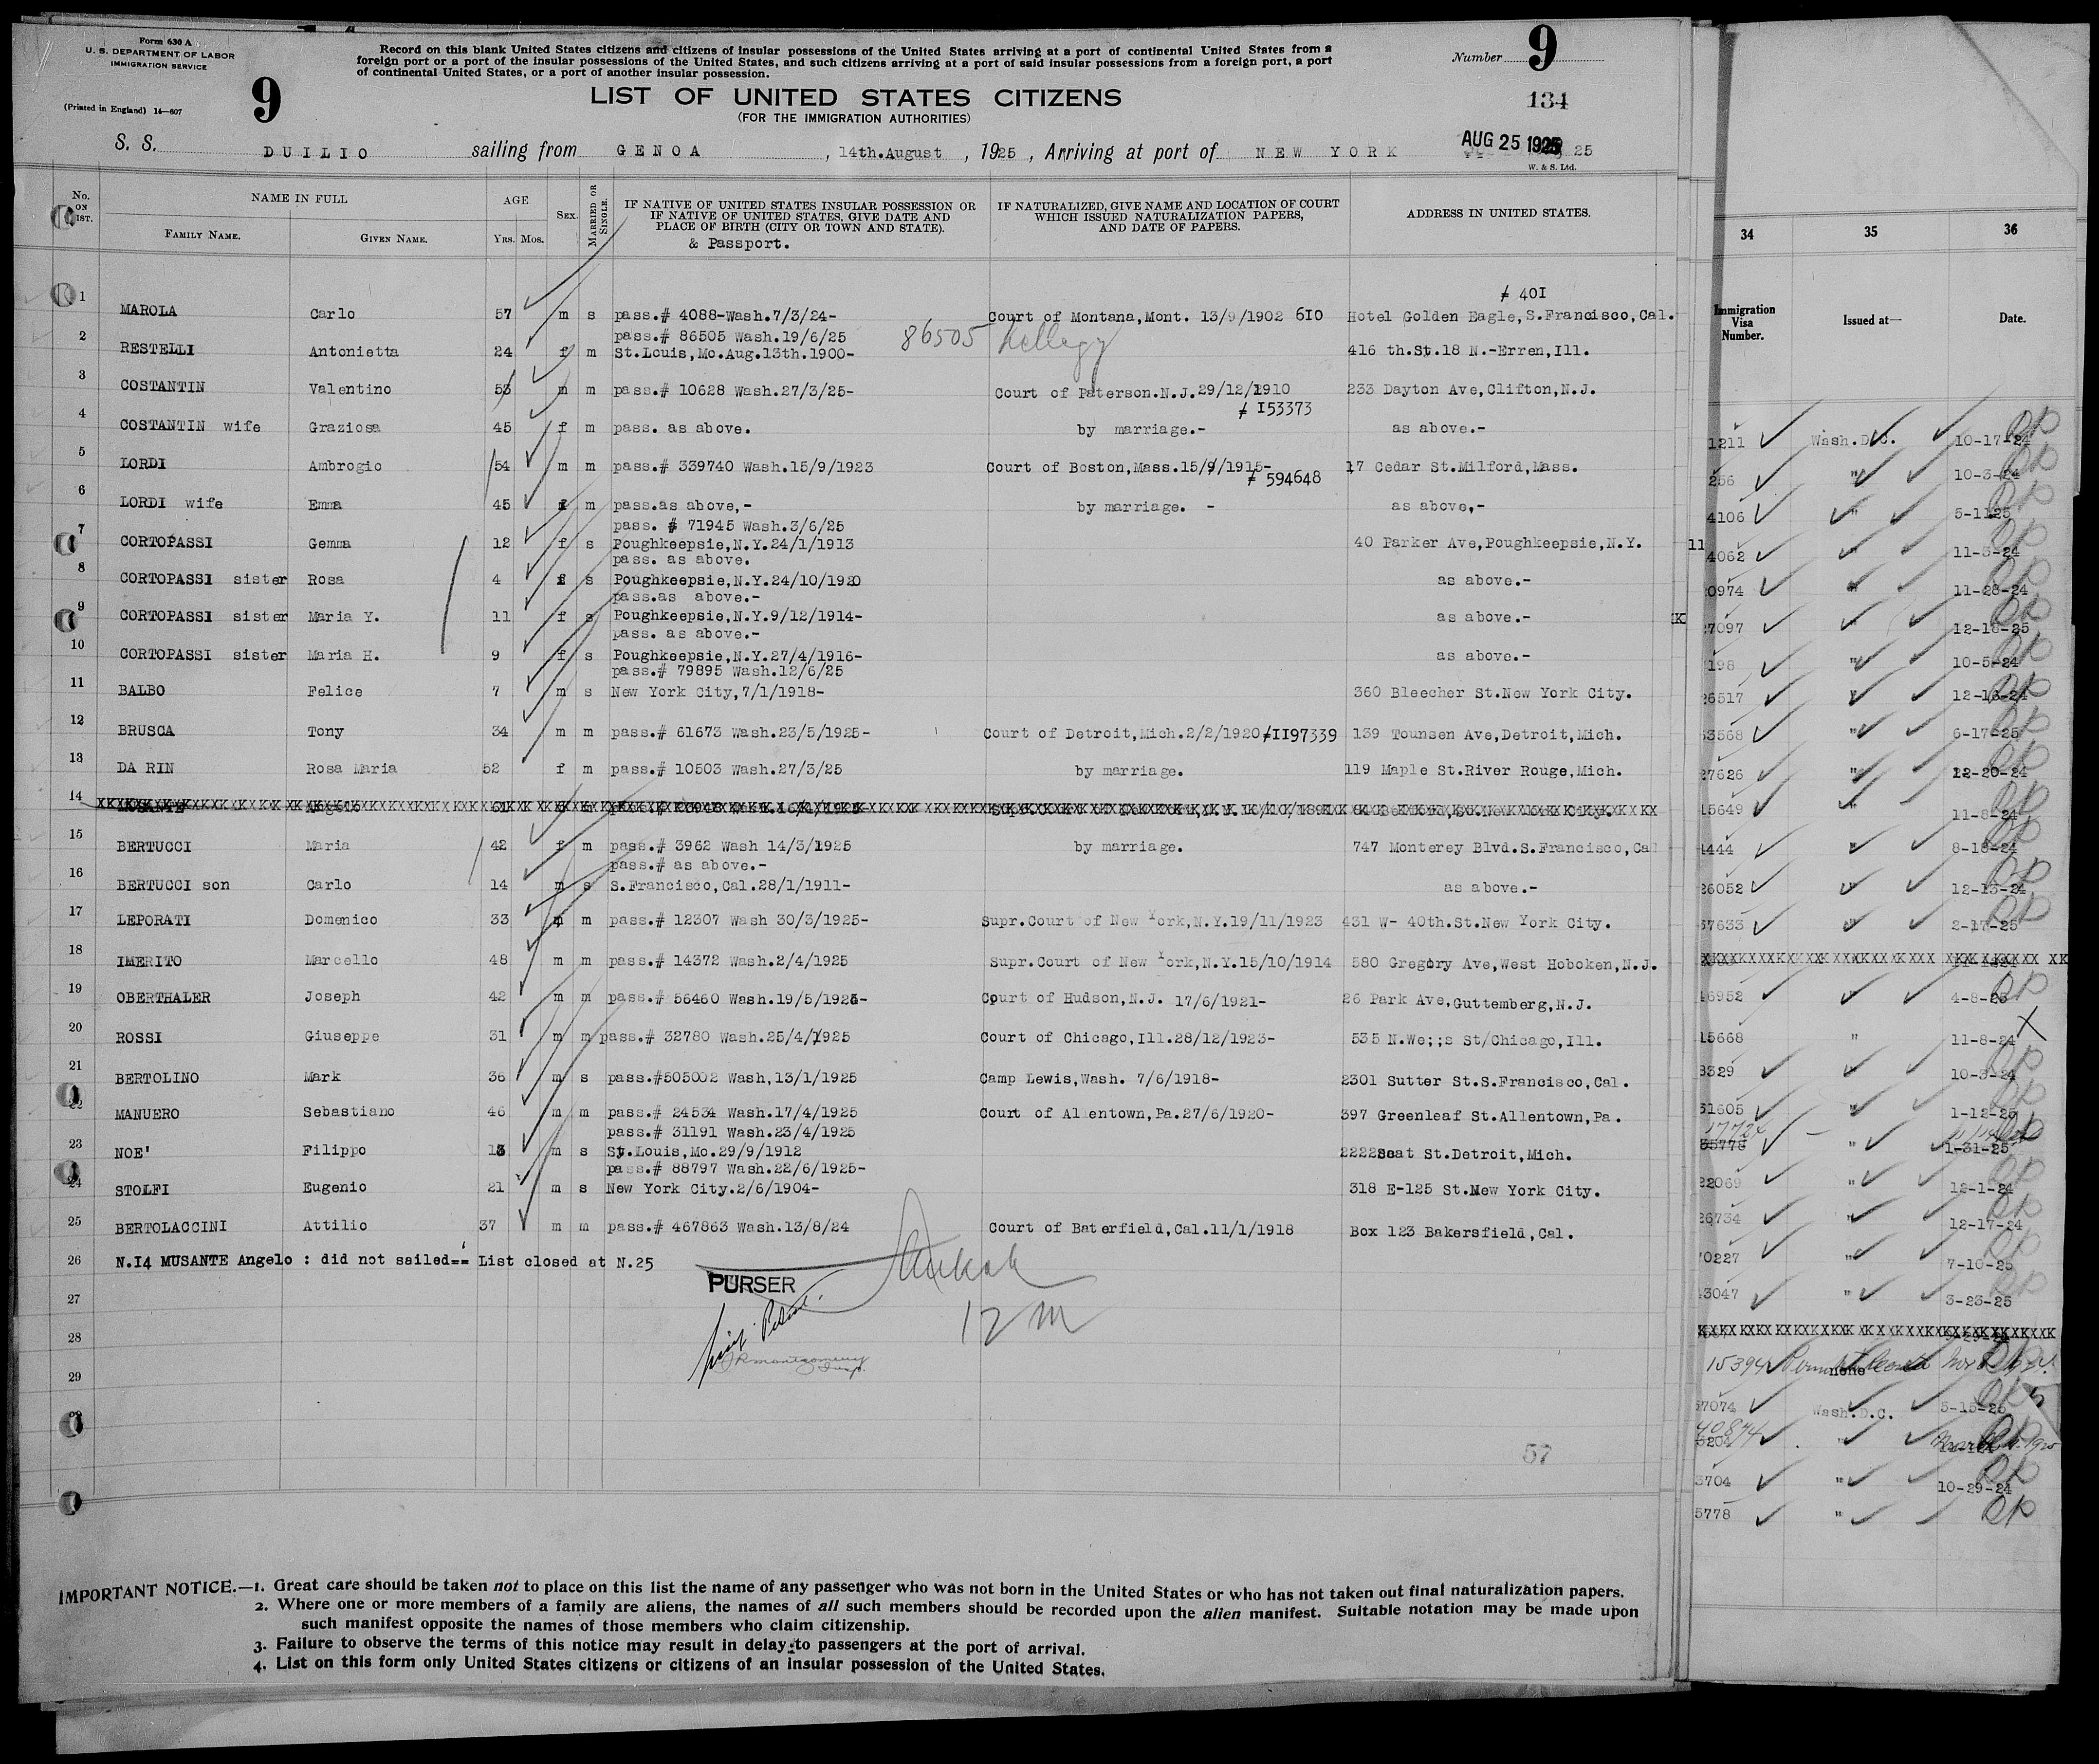 Form 630 A
U. S. DEPARTMENT OF LABOR
IMMIGRATION SERVICE
(Printed in England) 14—607
9
Record on this blank United States citizens and citizens of insular possessions of the United States arriving at a port of continental United States from a
foreign port or a port of the insular possessions of the United States, and such citizens arriving at a port of said insular possessions from a foreign port, a port
of continental United States, or a port of another insular possession.
Number 9
LIST OF UNITED STATES CITIZENS
(FOR THE IMMIGRATION AUTHORITIES)
134
S. S. DUILIO sailing from GENOA , 14th.August , 1925 , Arriving at port of NEW YORK AUG 25 1925 25
W. & S. Ltd.
No. ON LIST. NAME IN FULL AGE SEX. MARRIED OR SINGLE. IF NATIVE OF UNITED STATES INSULAR POSSESSION OR IF NATIVE OF UNITED STATES, GIVE DATE AND PLACE OF BIRTH (CITY OR TOWN AND STATE). & Passport. IF NATURALIZED, GIVE NAME AND LOCATION OF COURT WHICH ISSUED NATURALIZATION PAPERS, AND DATE OF PAPERS. ADDRESS IN UNITED STATES.
FAMILY NAME. GIVEN NAME. YRS. MOS.
# 40I
1 MAROLA Carlo 57 m s pass.# 4088-Wash.7/3/24- Court of Montana,Mont. 13/9/1902 6I0 Hotel Golden Eagle,S.Francisco,Cal.
pass.# 86505 Wash.19/6/25 86505
2 RESTELLI Antonietta 24 f m St.Louis,Mo.Aug.13th.1900- 416 th.St.18 N.-Erren,Ill.
3 COSTANTIN Valentino 53 m m pass.# 10628 Wash.27/3/25- Court of Paterson.N.J.29/12/1910 233 Dayton Ave,Clifton,N.J.
# I53373
4 COSTANTIN wife Graziosa 45 f m pass. as above. by marriage.- as above.-
5 LORDI Ambrogio 54 m m pass.# 339740 Wash.15/9/1923 Court of Boston,Mass.15/9/1915- 17 Cedar St.Milford,Mass.
# 594648
6 LORDI wife Emma 45 f m pass.as above,- by marriage. - as above,-
pass. # 71945 Wash.3/6/25
7 CORTOPASSI Gemma 12 f s Poughkeepsie,N.Y.24/1/1913 40 Parker Ave,Poughkeepsie,N.Y.
pass. as above.
8 CORTOPASSI sister Rosa 4 f s Poughkeepsie,N.Y.24/10/1920 as above.-
pass.as above.-
9 CORTOPASSI sister Maria Y. 11 f s Poughkeepsie,N.Y.9/12/1914- as above.-
pass. as above.-
10 CORTOPASSI sister Maria H. 9 f s Poughkeepsie,N.Y.27/4/1916- as above.-
pass.# 79895 Wash.12/6/25
11 BALBO Felice 7 m s New York City,7/1/1918- 360 Bleecher St.New York City.
12 BRUSCA Tony 34 m m pass.# 61673 Wash.23/5/1925- Court of Detroit,Mich.2/2/1920#II97339 139 Tounsen Ave,Detroit,Mich.
13 DA RIN Rosa Maria 52 f m pass.# 10503 Wash.27/3/25 by marriage. 119 Maple St.River Rouge,Mich.
14
15 BERTUCCI Maria 42 f m pass.# 3962 Wash 14/3/1925 by marriage. 747 Monterey Blvd.S.Francisco,Cal
pass.# as above.-
16 BERTUCCI son Carlo 14 m s S.Francisco,Cal.28/1/1911- as above.-
17 LEPORATI Domenico 33 m m pass.# 12307 Wash 30/3/1925- Supr.Court of New York,N.Y.19/11/1923 431 W- 40th.St.New York City.
18 IMERITO Marcello 48 m m pass.# 14372 Wash.2/4/1925 Supr.Court of New York,N.Y.15/10/1914 580 Gregory Ave,West Hoboken,N.J.
19 OBERTHALER Joseph 42 m m pass.# 56460 Wash.19/5/1925- Court of Hudson,N.J. 17/6/1921- 26 Park Ave,Guttemberg,N.J.
20 ROSSI Giuseppe 31 m m pass.# 32780 Wash.25/4/1925 Court of Chicago,Ill.28/12/1923- 535 N.We;;s St/Chicago,Ill.
21 BERTOLINO Mark 36 m s pass.#505002 Wash,13/1/1925 Camp Lewis,Wash. 7/6/1918- 2301 Sutter St.S.Francisco,Cal.
22 MANUERO Sebastiano 46 m m pass.# 24534 Wash.17/4/1925 Court of Allentown,Pa.27/6/1920- 397 Greenleaf St.Allentown,Pa.
pass.# 31191 Wash.23/4/1925
23 NOE' Filippo 13 m s St.Louis,Mo.29/9/1912 2222 St.Detroit,Mich.
pass.# 88797 Wash.22/6/1925-
24 STOLFI Eugenio 21 m s New York City.2/6/1904- 318 E-125 St.New York City.
25 BERTOLACCINI Attilio 37 m m pass.# 467863 Wash.13/8/24 Court of Baterfield,Cal.11/1/1918 Box 123 Bakersfield,Cal.
26 N.I4 MUSANTE Angelo : did not sailed== List closed at N.25
PURSER
12 M
27
28
29
57
IMPORTANT NOTICE.—1. Great care should be taken not to place on this list the name of any passenger who was not born in the United States or who has not taken out final naturalization papers.
2. Where one or more members of a family are aliens, the names of all such members should be recorded upon the alien manifest. Suitable notation may be made upon
such manifest opposite the names of those members who claim citizenship.
3. Failure to observe the terms of this notice may result in delay to passengers at the port of arrival.
4. List on this form only United States citizens or citizens of an insular possession of the United States.
34 35 36
Immigration Visa Number. Issued at— Date.
1211 Wash.D.C. 10-17-24
256 " 10-3-24
4106 " 5-1125
4062 " 11-3-24
0974 " 11-28-24
7097 12-18-25
198 " 10-5-24
26517 " 12-16-24
53568 " 6-17-25
27626 " 12-20-24
15649 " 11-8-24
4444 " 8-18-24
26052 " 12-13-24
37633 " 2-17-25
16952 " 4-8-25
15668 " 11-8-24
8329 " 10-3-24
31605 " 1-12-25
35778 " 1-31-25
22069 " 12-1-24
26734 " 12-17-24
0227 " 7-10-25
43047 " 3-23-25
15394 none
57074 Wash.D.C. 5-15-25
40874 "
3704 " 10-29-24
5778 "